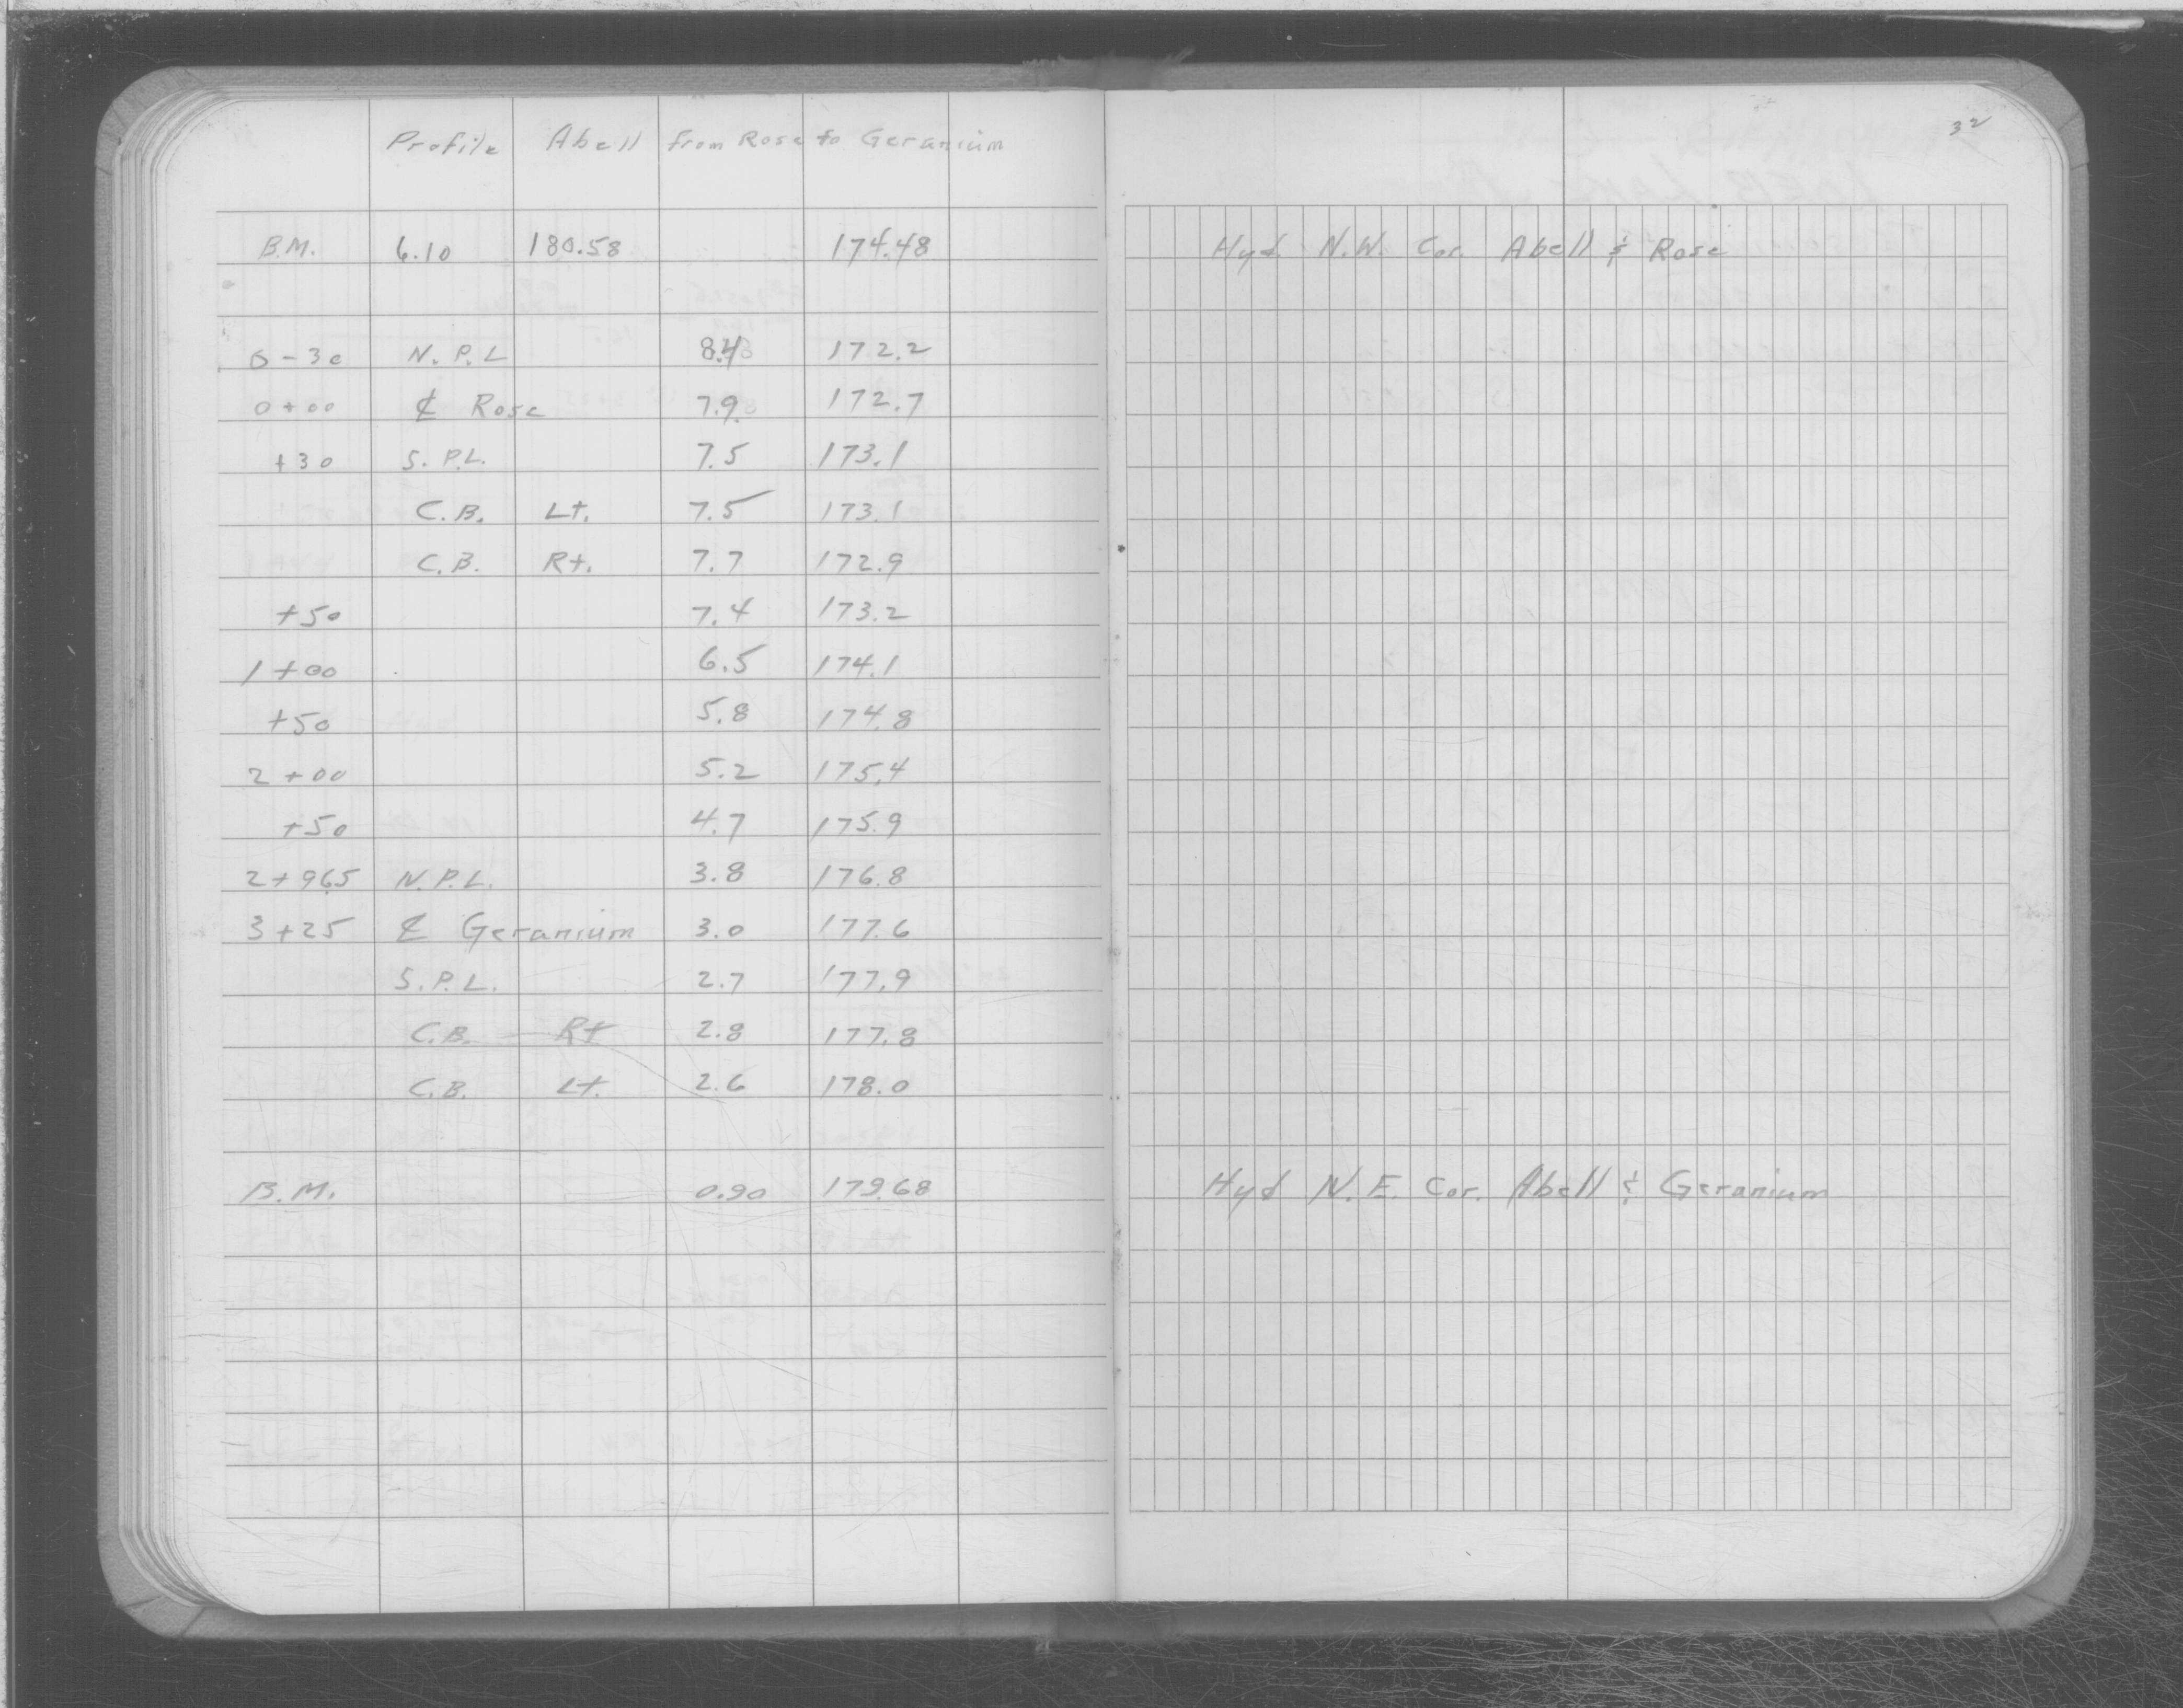 32
Profile Abell from Rose to Geranium
B.M. 6.10 180.58 174.48 Hyd. N.W. Cor. Abell & Rose
0-30 N.P.L 8.4 172.2
0+00 ℄ Rose 7.9 172.7
+30 S.P.L. 7.5 173.1
C.B. Lt. 7.5 173.1
C.B. Rt. 7.7 172.9
+50 7.4 173.2
1+00 6.5 174.1
+50 5.8 174.8
2+00 5.2 175.4
+50 4.7 175.9
2+96.5 N.P.L. 3.8 176.8
3+25 ℄ Geranium 3.0 177.6
S.P.L. 2.7 177.9
C.B. Rt 2.8 177.8
C.B. Lt. 2.6 178.0
B.M. 0.90 179.68 Hyd N.E. Cor. Abell & Geranium